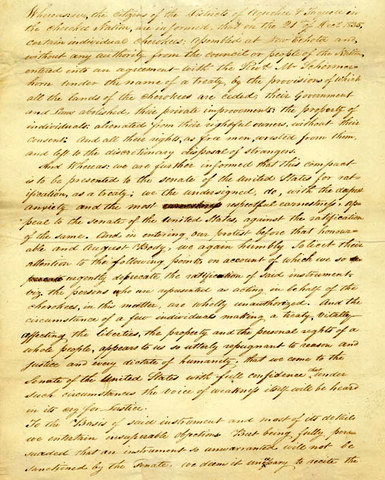 Whereas, we, the citizens of the Districts of Aquohee & Taquoee in
the Cherokee Nation, are informed, that on the 29th of Decr. 1835,
certain individual Cherokees, assembled at New Echota and,
without any authority from the council or people of the Nation
entered into an agreement with the Revd. Mr. Schermer-
horn under the name of a treaty, by the provisions of which
all the lands of the cherokees are ceded, their Government
and laws abolished, their private improvements, the property of
individuals alienated from their rightful owners, without their
consent; And all these rights, as free men wrested from them,
and left to the discretionary disposal of strangers.
And Whereas we are further informed that this compact
is to be presented to the senate of the united States for rat-
ification, as a treaty; we the undersigned, do, with the deepest
anxiety and the most respectful earnestness, Ap-
peal to the senate of the united States, against the ratification
of the same. And in entering our protest before that honour-
able and August Body, we again humbly solicit their
attention to the following points on account of which we so
urgently deprecate the ratification of Said instrument.
viz, the persons who are represented as acting in behalf of the
cherokees, in this matter, are wholly unauthorized. And the
circumstance of a few individuals making a treaty, vitally
affecting the liberties, the property and the personal rights of a
whole people, appears to us so utterly repugnant to reason and
justice and every dictate of humanity, that we come to the
Senate of the United States with full confidence that under
such circumstances the voice of weakness itself will be heard
in its cry for Justice.
To the Basis of said instrument and most of its details
we entertain insuperable objections But being fully per-
suaded that an instrument so unwarranted will not be
sanctioned by the Senate, we deem it unnecessary to recite the